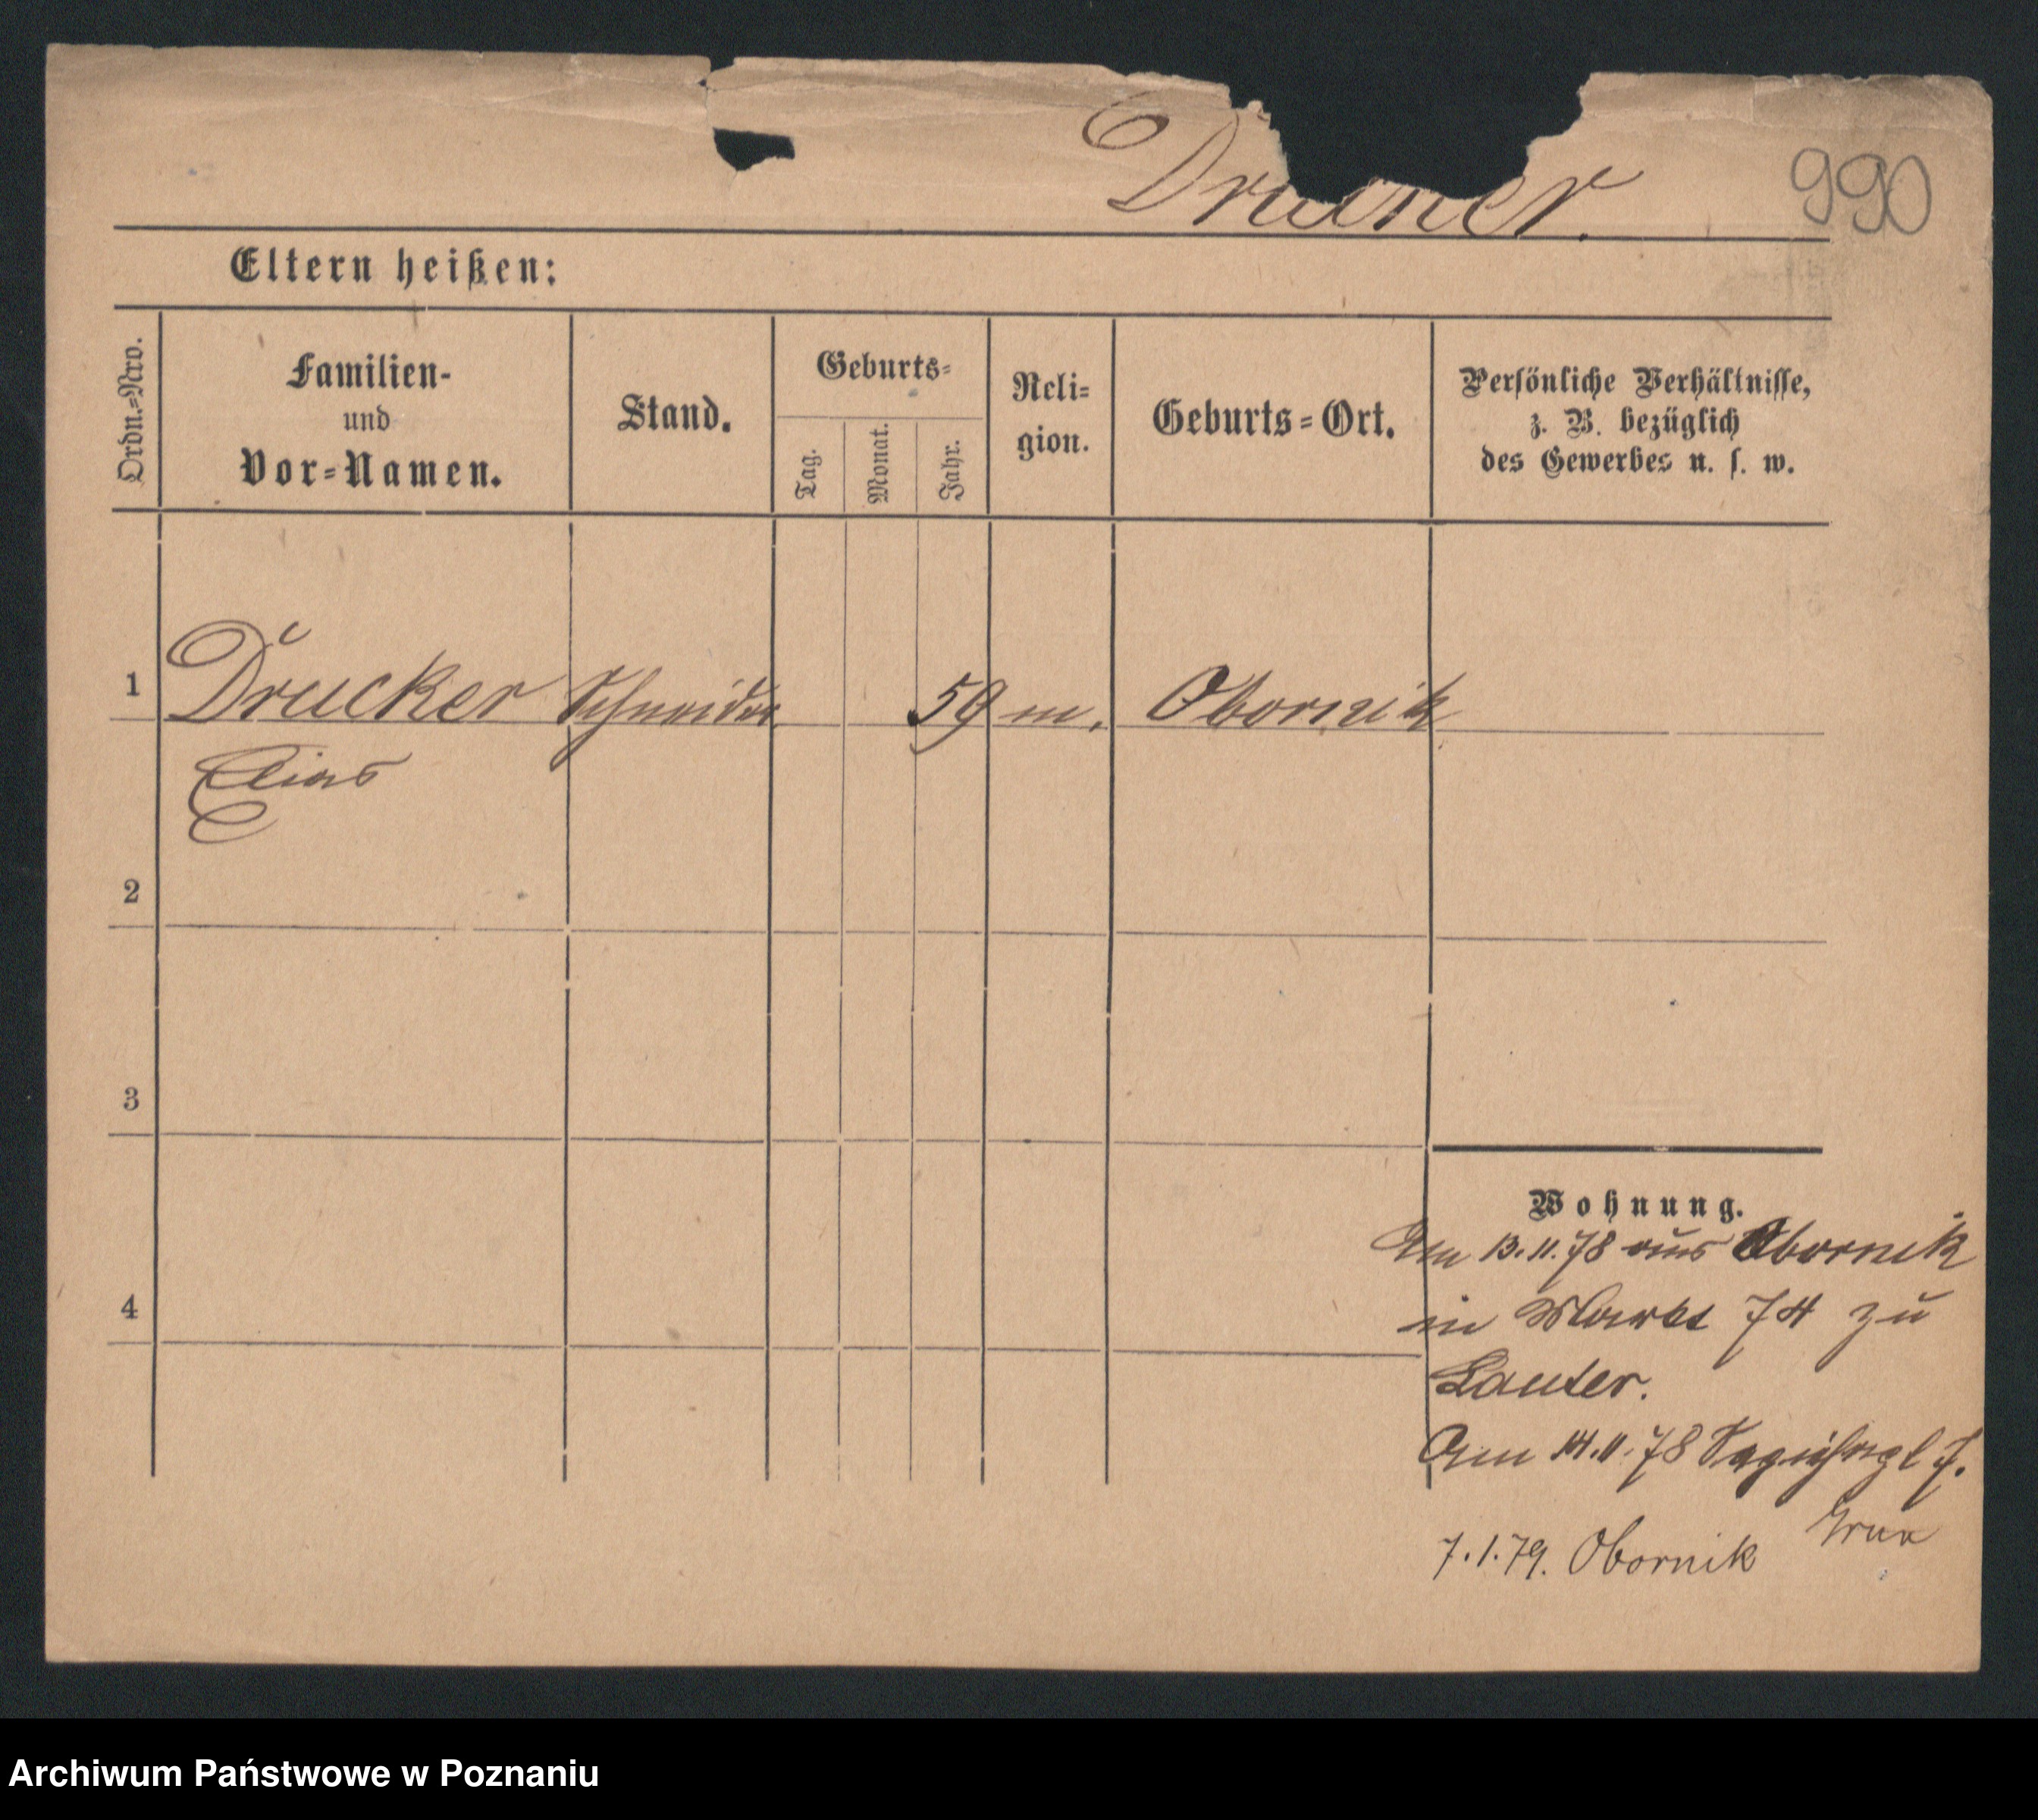 Drucker.
990
Eltern heißen:
Ordn.=Nro.
Familien-
und
Vor=Namen.
Stand.
Geburts=
Tag.
Monat.
Jahr.
Reli=
gion.
Geburts=Ort.
Persönliche Verhältnisse,
z. B. bezüglich
des Gewerbes u. s. w.
1 Drucker Schneider 59 m. Obornik
Elias
2
3
4
Wohnung.
Am 13.11.78 aus Obornik
in Markt 74 zu
Lauter.
Am 14.11.78
7.1.79. Obornik
Archiwum Państwowe w Poznaniu